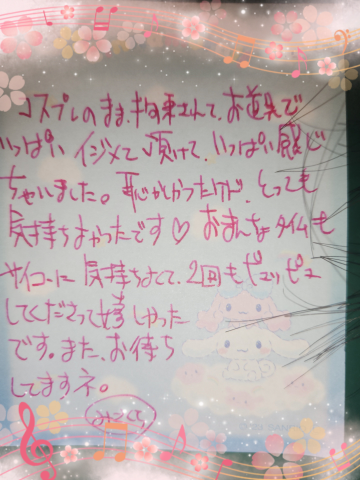 コスプレのまま、拘束されて、お道具で
いっぱい イジメて頂けて、いっぱい感じ
ちゃいました。恥かしかったけド、とっても
気持ちよかったです♡ おまんちょタイムも
サイコーに 気持ちよくて、2回もピュッピュー
してくださって嬉しかった
です。また、お待ち
してますネ。